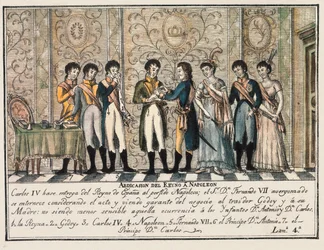 ABDICACION DEL REYNO Á NAPOLEON
Carlos IV hace entrega del Reyno de España al perfido Napoleon; el Sr. Dn. Fernando VII avergonzado
se entristece considerando el acto y siendo garante del negocio al traidor Godoy y á su
Madre: no siendo menos sensible aquella ocurrencia á los Infantes Dn. Antonio y Dn. Carlos.
1. la Reyna. 2. Godoy. 3. Carlos IV. 4. Napoleon. 5. Fernando VII. 6. el Principe Dn. Antonio. 7. el
Principe Dn. Carlos.
Lam.a 4.a